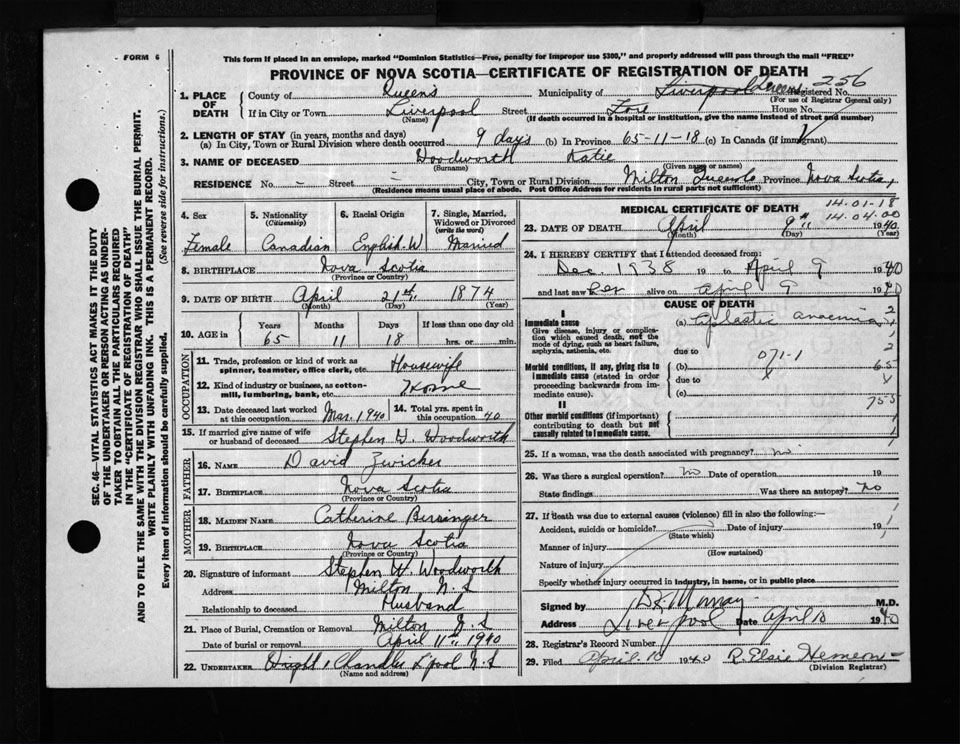 FORM 6
This form if placed in an envelope, marked "Dominion Statistics—Free, penalty for improper use $300," and properly addressed will pass through the mail "FREE"
PROVINCE OF NOVA SCOTIA—CERTIFICATE OF REGISTRATION OF DEATH
256
1. PLACE OF DEATH County of Queens Municipality of Liverpool Queens Registered No.
(For use of Registrar General only)
If in City or Town Liverpool Street House No.
(Name) (If death occurred in a hospital or institution, give the name instead of street and number)
2. LENGTH OF STAY (in years, months and days)
(a) In City, Town or Rural Division where death occurred 9 days (b) In Province 65-11-18 (c) In Canada (if immigrant)
3. NAME OF DECEASED Woodworth Katie
(Surname) (Given name or names)
RESIDENCE No. - Street - City, Town or Rural Division Milton Queens Province Nova Scotia
(Residence means usual place of abode. Post Office Address for residents in rural parts not sufficient)
4. Sex 5. Nationality (Citizenship) 6. Racial Origin 7. Single, Married, Widowed or Divorced (write the word)
Female Canadian English. W Married
8. BIRTHPLACE Nova Scotia
(Province or Country)
9. DATE OF BIRTH April 21st 1874
(Month) (Day) (Year)
10. AGE in Years Months Days If less than one day old
65 11 18 hrs. or min.
OCCUPATION
11. Trade, profession or kind of work as spinner, teamster, office clerk, etc. Housewife
12. Kind of industry or business, as cotton-mill, lumbering, bank, etc. Home
13. Date deceased last worked at this occupation Mar. 1940 14. Total yrs. spent in this occupation 40
15. If married give name of wife or husband of deceased Stephen W. Woodworth
FATHER
16. NAME David Zwicker
17. BIRTHPLACE Nova Scotia
(Province or Country)
MOTHER
18. MAIDEN NAME Catherine
19. BIRTHPLACE Nova Scotia
(Province or Country)
20. Signature of informant Stephen W. Woodworth
Address Milton N.S
Relationship to deceased Husband
21. Place of Burial, Cremation or Removal Milton N.S
Date of burial or removal April 11th 1940
22. UNDERTAKER Wright & Chandler L'pool N.S
(Name and address)
MEDICAL CERTIFICATE OF DEATH
14.01-18
14.04.00
23. DATE OF DEATH April 9th 1940
(Month) (Day) (Year)
24. I HEREBY CERTIFY that I attended deceased from:
Dec. 1938 19 to April 9 1940
and last saw her alive on April 9 1940
CAUSE OF DEATH
I
Immediate cause
Give disease, injury or complication which caused death, not the mode of dying, such as heart failure, asphyxia, asthenia, etc.
(a) Aplastic anaemia
due to 071-1
Morbid conditions, if any, giving rise to immediate cause (stated in order proceeding backwards from immediate cause).
(b)
due to
(c)
II
Other morbid conditions (if important) contributing to death but not causally related to immediate cause.
25. If a woman, was the death associated with pregnancy? no
26. Was there a surgical operation? no Date of operation 19
State findings Was there an autopsy? no
27. If death was due to external causes (violence) fill in also the following:—
Accident, suicide or homicide? Date of injury 19
(State which)
Manner of injury
(How sustained)
Nature of injury
Specify whether injury occurred in industry, in home, or in public place
Signed by Murray M.D.
Address Liverpool Date April 10 1940
28. Registrar's Record Number
29. Filed April. 10 1940 R. Elsie Hemeon
(Division Registrar)
SEC. 46—VITAL STATISTICS ACT MAKES IT THE DUTY
OF THE UNDERTAKER OR PERSON ACTING AS UNDER-
TAKER TO OBTAIN ALL THE PARTICULARS REQUIRED
IN THE "CERTIFICATE OF REGISTRATION OF DEATH"
AND TO FILE THE SAME WITH THE DIVISION REGISTRAR WHO SHALL ISSUE THE BURIAL PERMIT.
WRITE PLAINLY WITH UNFADING INK. THIS IS A PERMANENT RECORD.
Every item of information should be carefully supplied. (See reverse side for instructions.)